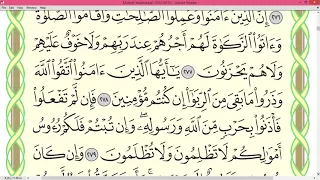 إِنَّ الَّذِينَ ءَامَنُوا وَعَمِلُوا الصَّلِحَتِ وَأَقَامُوا الصَّلَوةَ
وَءَاتَوُا الزَّكَوةَ لَهُمْ أَجْرُهُمْ عِندَ رَبِّهِمْ وَلَا خَوْفٌ عَلَيْهِمْ
وَلَا هُمْ يَحْزَنُونَ ٢٧٧ يَأَيُّهَا الَّذِينَ ءَامَنُوا اتَّقُوا اللَّهَ
وَذَرُوا مَا بَقِيَ مِنَ الرِّبَوا إِن كُنتُم مُّؤْمِنِينَ ٢٧٨ فَإِن لَّمْ تَفْعَلُوا
فَأْذَنُوا بِحَرْبٍ مِّنَ اللَّهِ وَرَسُولِهِ وَإِن تُبْتُمْ فَلَكُمْ رُءُوسُ
أَمْوَلِكُمْ لَا تَظْلِمُونَ وَلَا تُظْلَمُونَ ٢٧٩ وَإِن كَانَ